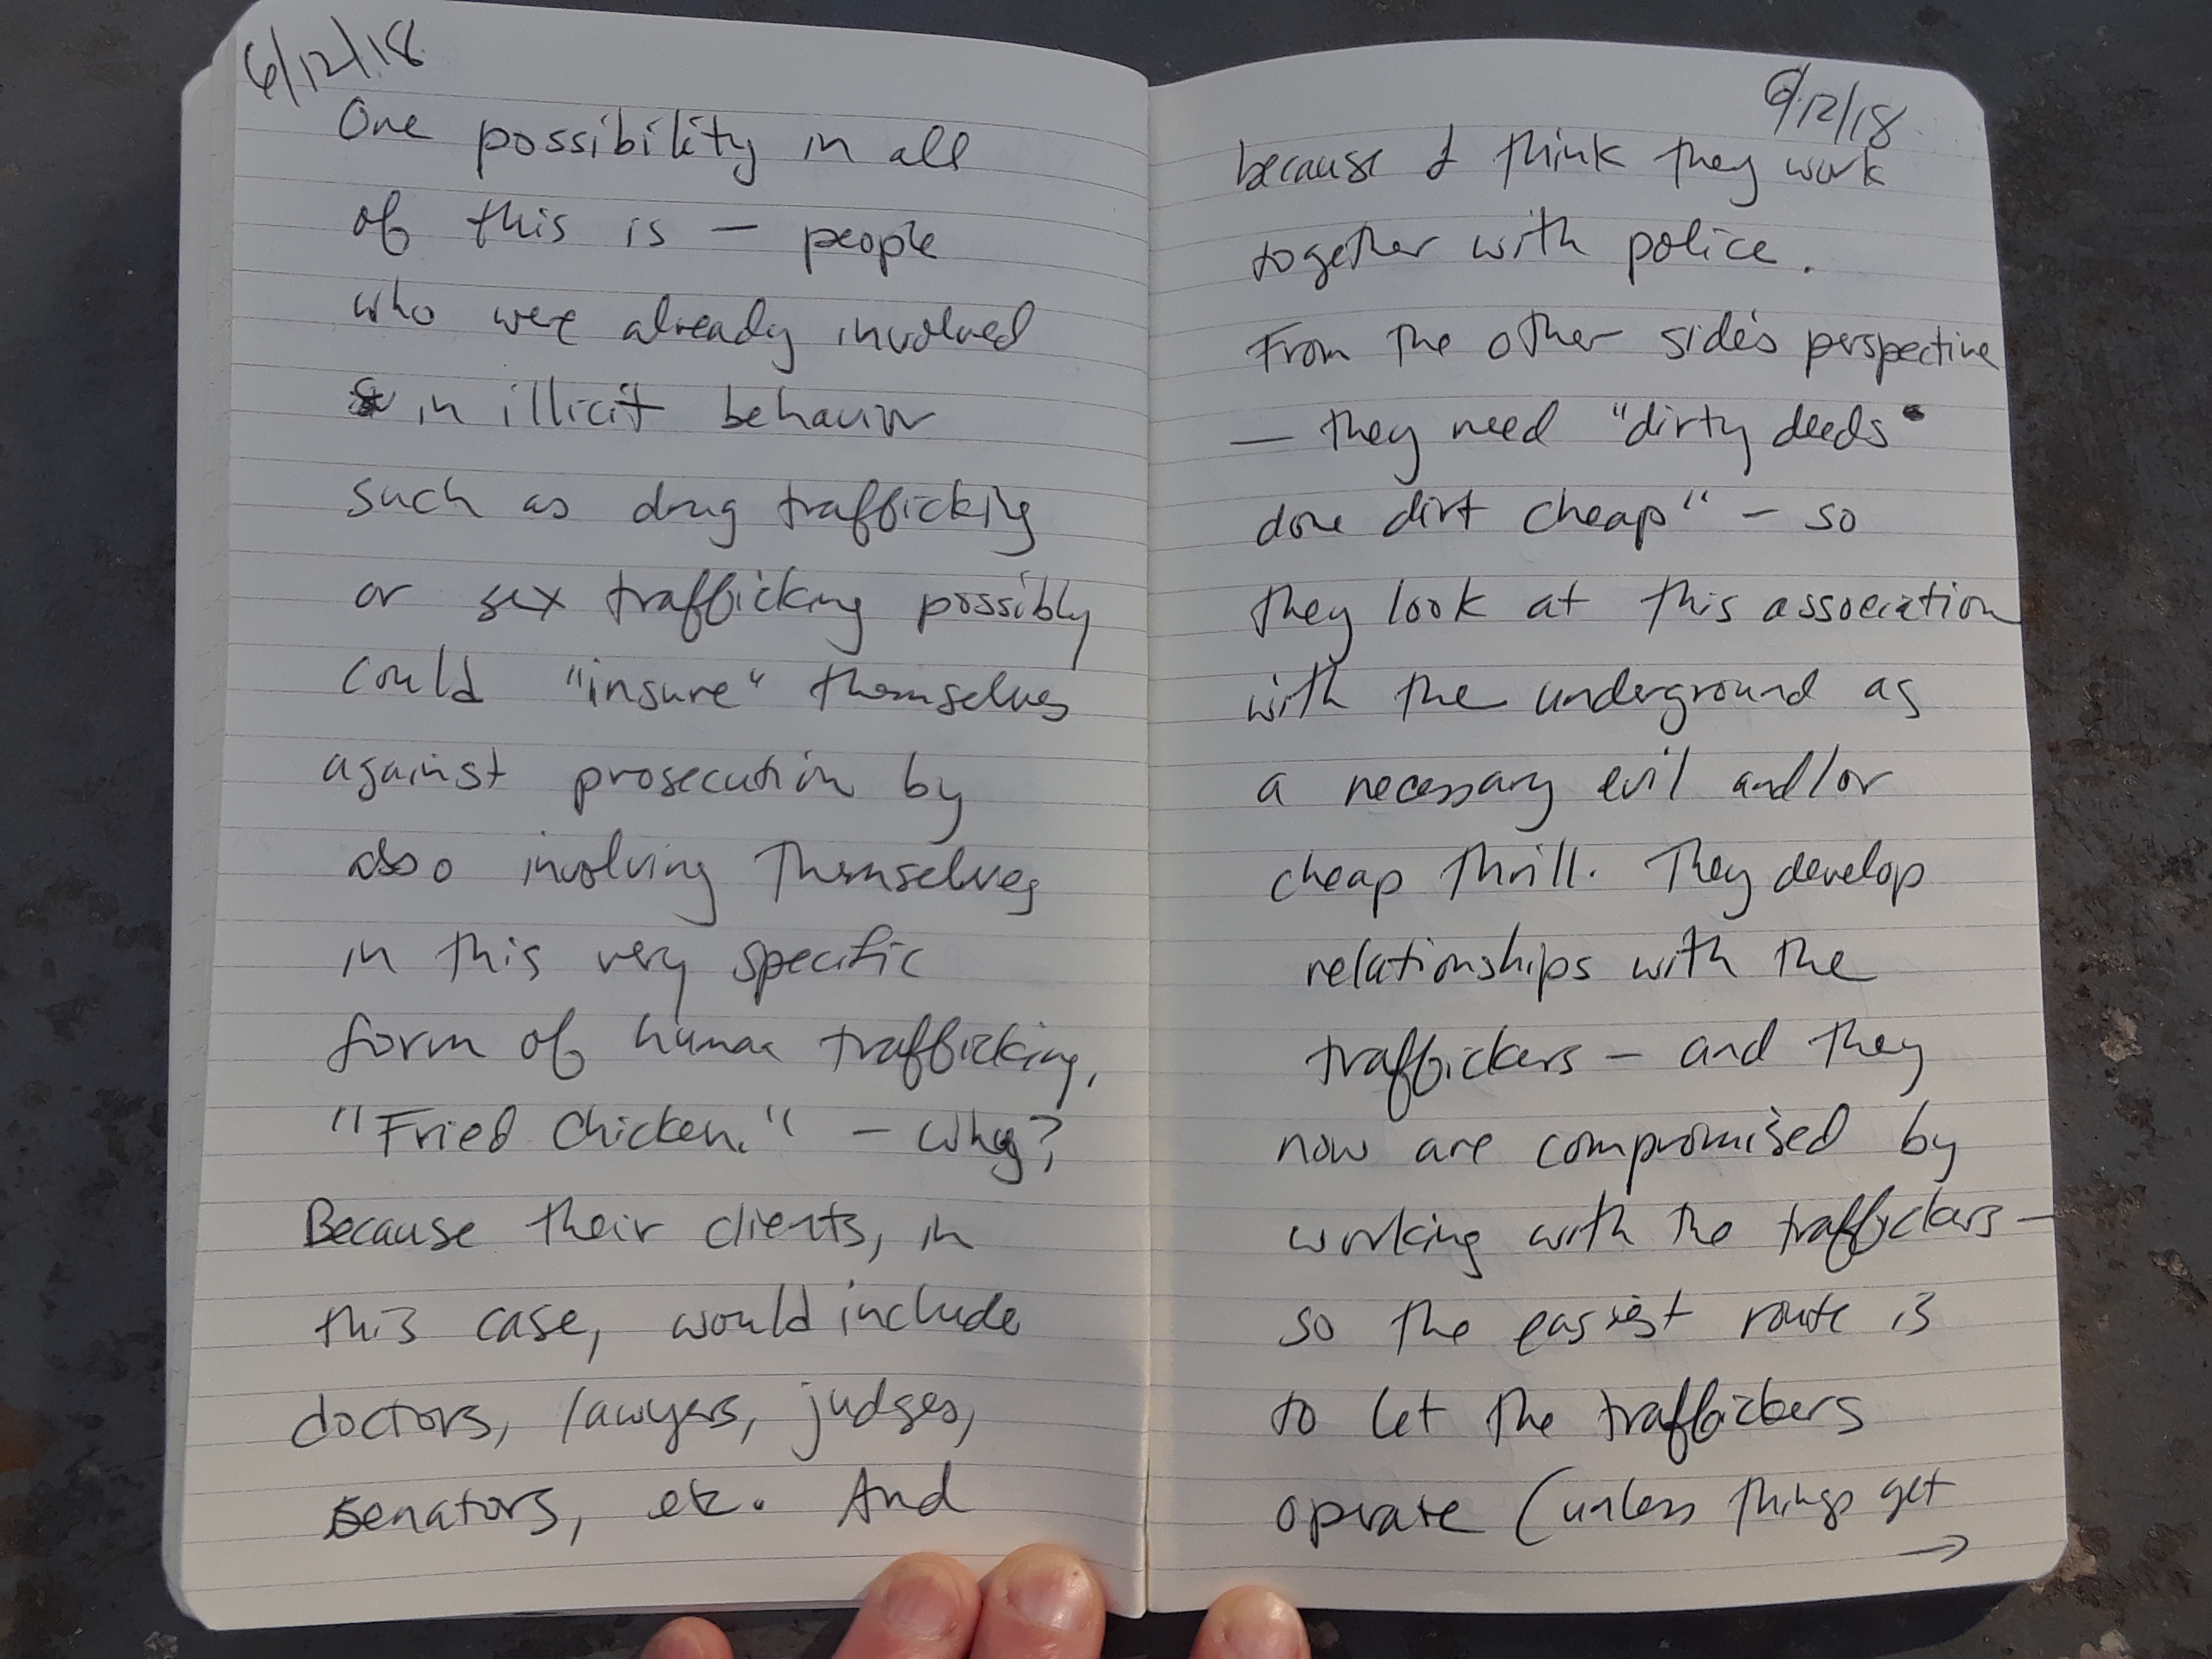 6/12/18
One possibility in all
of this is — people
who were already involved
in illicit behavior
such as drug trafficking
or sex trafficking possibly
could "insure" themselves
against prosecution by
also involving themselves
in this very specific
form of human trafficking,
"Fried Chicken." — why?
Because their clients, in
this case, would include
doctors, lawyers, judges,
senators, etc. And
6/12/18
because I think they work
together with police.
From the other side's perspective
— they need "dirty deeds
done dirt cheap" — so
they look at this association
with the underground as
a necessary evil and/or
cheap thrill. They develop
relationships with the
traffickers — and they
now are compromised by
working with the traffickers —
so the easiest route is
to let the traffickers
operate (unless things get
→